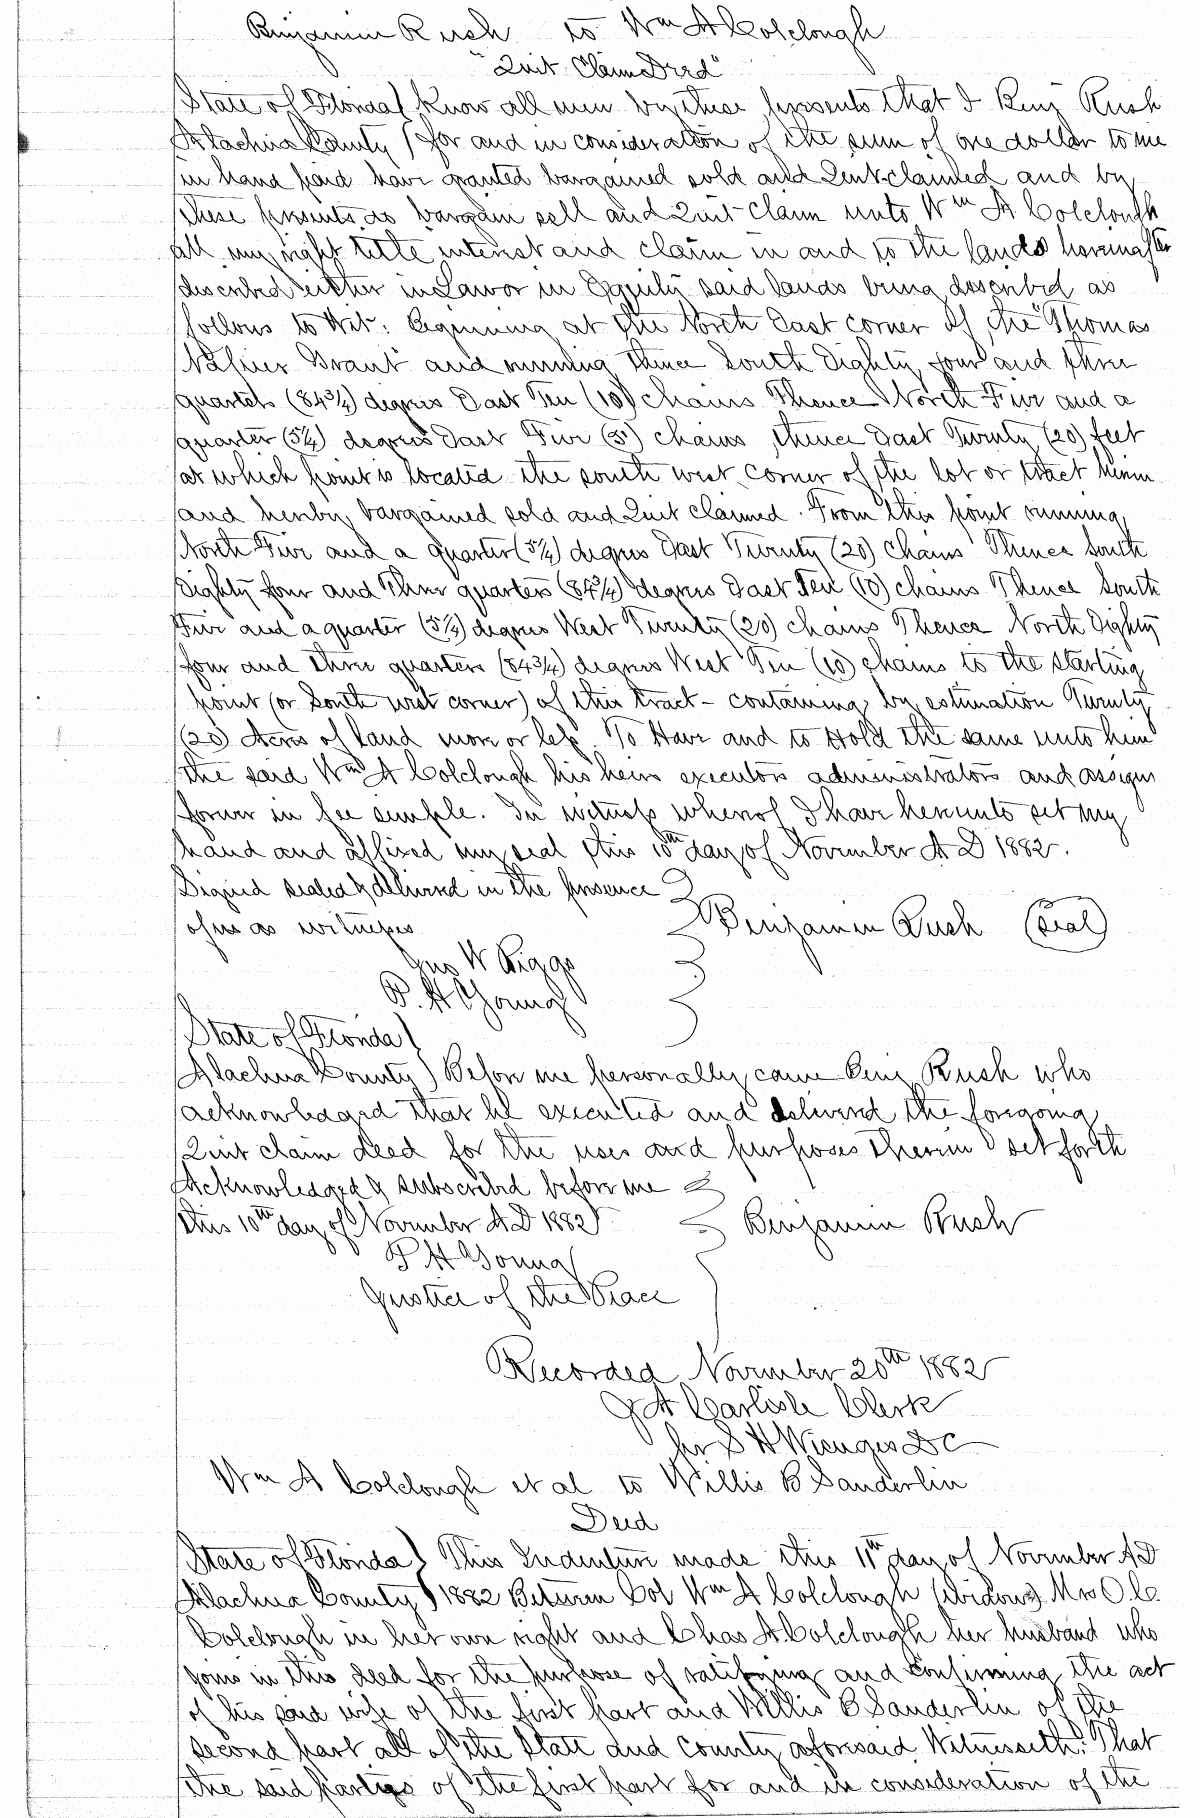 Benjamin Rush to Wm A Colclough
"Quit Claim Deed"
State of Florida } Know all men by these presents that I Benj Rush
Alachua County } for and in consideration of the sum of one dollar to me
in hand paid have granted bargained sold and Quit-claimed and by
these presents do bargain sell and Quit-Claim unto Wm A Colclough
all my right title interest and claim in and to the lands hereinafter
described either in Law or in Equity said lands being described as
follows to Wit: Beginning at the North East corner of the "Thomas
Napier Grant" and running thence South Eighty four and three
quarters (84¾) degrees East Ten (10) chains Thence North Five and a
quarter (5¼) degrees East Five (5) chains, thence East Twenty (20) feet
at which point is located the south west corner of the lot or tract herein
and hereby bargained sold and Quit claimed. From this point running
North Five and a quarter (5¼) degrees East Twenty (20) chains Thence South
Eighty four and Three quarters (84¾) degrees East Ten (10) chains Thence South
Five and a quarter (5¼) degrees West Twenty (20) chains Thence North Eighty
four and three quarters (84¾) degrees West Ten (10) chains to the starting
point (or South west corner) of this tract - containing by estimation Twenty
(20) Acres of land more or less. To Have and to Hold the same unto him
the said Wm A Colclough his heirs executors administrators and assigns
forever in fee simple. In witness whereof I have hereunto set my
hand and affixed my seal this 10th day of November A D 1882.
Signed sealed & delivered in the presence
of us as witnesses Benjamin Rush (Seal)
Jno W Riggs
P. H Young
State of Florida }
Alachua County } Before me personally came Benj Rush who
acknowledged that he executed and delivered the foregoing
Quit claim deed for the uses and purposes therein set forth
Acknowledged & subscribed before me
this 10th day of November A D 1882 Benjamin Rush
P H Young
Justice of the Peace
Recorded November 20th 1882
J A Carlisle Clerk
pr S H Wienges D C
Wm A Colclough et al to Willis B Sanderlin
Deed
State of Florida } This Indenture made this 11th day of November A D
Alachua County } 1882 Between Col Wm A Colclough (Widower) Mrs O. C.
Colclough in her own right and Chas A. Colclough her husband who
joins in this deed for the purpose of ratifying and Confirming the act
of his said wife of the first part and Willis B Sanderlin of the
second part all of the State and County aforesaid Witnesseth: That
the said parties of the first part for and in consideration of the